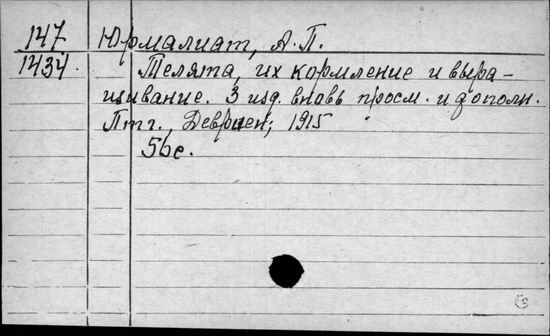 147 Юрмалиат, А. П.
1434. Телята, их кормление и выра-
щивание. 3 изд. вновь просм. и дополн.
Птг., Девриен, 1915
56 с.